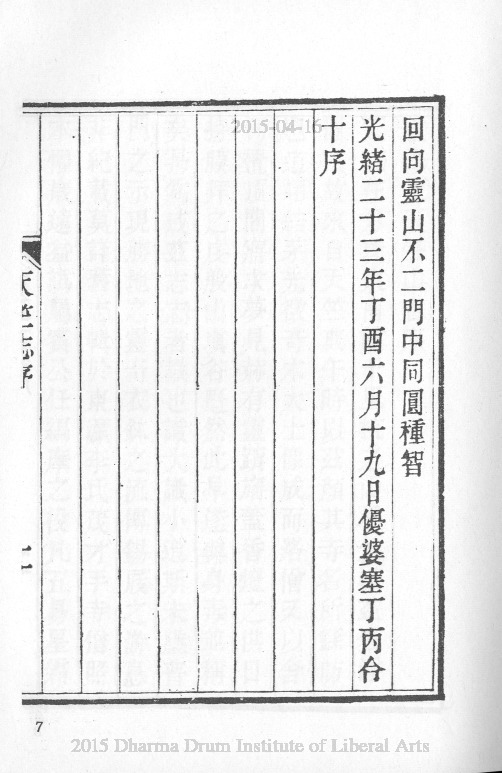 回向靈山不二門中同圓種智
光緒二十三年丁酉六月十九日優婆塞丁丙合
十序
天竺志序
二
7
2015-04-16
2015 Dharma Drum Institute of Liberal Arts